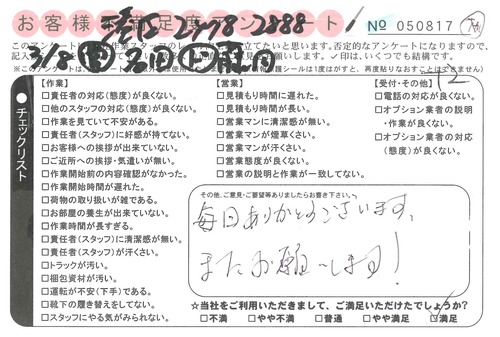 お客様 満足度アンケート
2778 2888
№ 050817
3/8
12
☆当社をご利用いただきまして、ご満足いただけたでしょうか?
□不満 □やや不満 □普通 □やや満足 ☑満足
チェックリスト
【作業】
□責任者の対応(態度)が良くない。
□他のスタッフの対応(態度)が良くない。
□作業を見ていて不安がある。
□責任者(スタッフ)に好感が持てない。
□お客様への挨拶が出来ていない。
□ご近所への挨拶・気遣いが無い。
□作業開始前の内容確認がなかった。
□作業開始時間が遅れた。
□荷物の取り扱いが雑である。
□お部屋の養生が出来ていない。
□作業時間が長すぎる。
□責任者(スタッフ)に清潔感が無い。
□責任者(スタッフ)が汗くさい。
□トラックが汚い。
□梱包資材が汚い。
□運転が不安(下手)である。
□靴下の履き替えをしてない。
□スタッフにやる気がみられない。
【営業】
□見積もり時間に遅れた。
□見積もり時間が長い。
□営業マンに清潔感が無い。
□営業マンが煙草くさい。
□営業マンが汗くさい。
□営業態度が良くない。
□営業の説明と作業が一致してない。
【受付・その他】
□電話の対応が良くない。
□オプション業者の説明
・作業が良くない。
□オプション業者の対応
(態度)が良くない。
その他、ご意見・ご要望等ありましたらお書き下さい。
毎日ありがとうございます。
またお願いします!